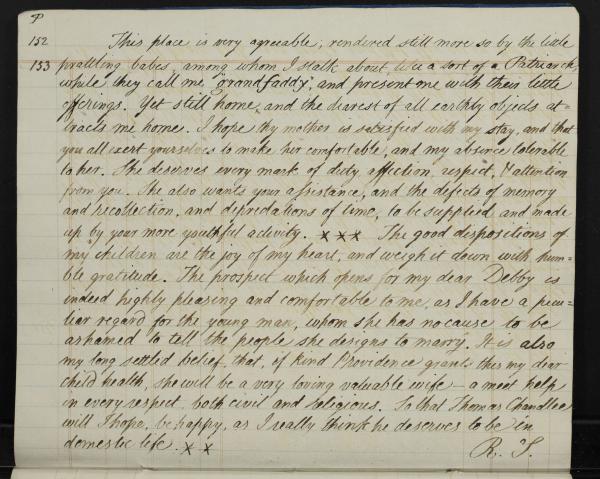 P
152 This place is very agreeable; rendered still more so by the little
153 prattling babes, among whom I stalk about, like a sort of a Patriarch,
while they call me "grandfaddy", and present me with their little
offerings. Yet still home, and the dearest of all earthly objects at-
tracts me home. I hope thy mother is satisfied with my stay, and that
you all exert yourselves to make her comfortable, and my absence tolerable
to her. She deserves every mark of duty, affection, respect, & attention
from you. She also wants your assistance, and the defects of memory
and recollection, and depredations of time, to be supplied and made
up by your more youthful activity. x x x The good dispositions of
my children are the joy of my heart, and weigh it down with hum-
ble gratitude. The prospect which opens for my dear Debby is
indeed highly pleasing and comfortable to me, as I have a pecu-
liar regard for the young man, whom she has no cause to be
ashamed to tell the people she designs to marry. It is also
my long settled belief, that, if kind Providence grants this my dear
child health, she will be a very loving valuable wife - a meet help
in every respect, both civil and religious. So that Thomas Chandlee
will I hope, be happy, as I really think he deserves to be in
domestic life. x x R. S.